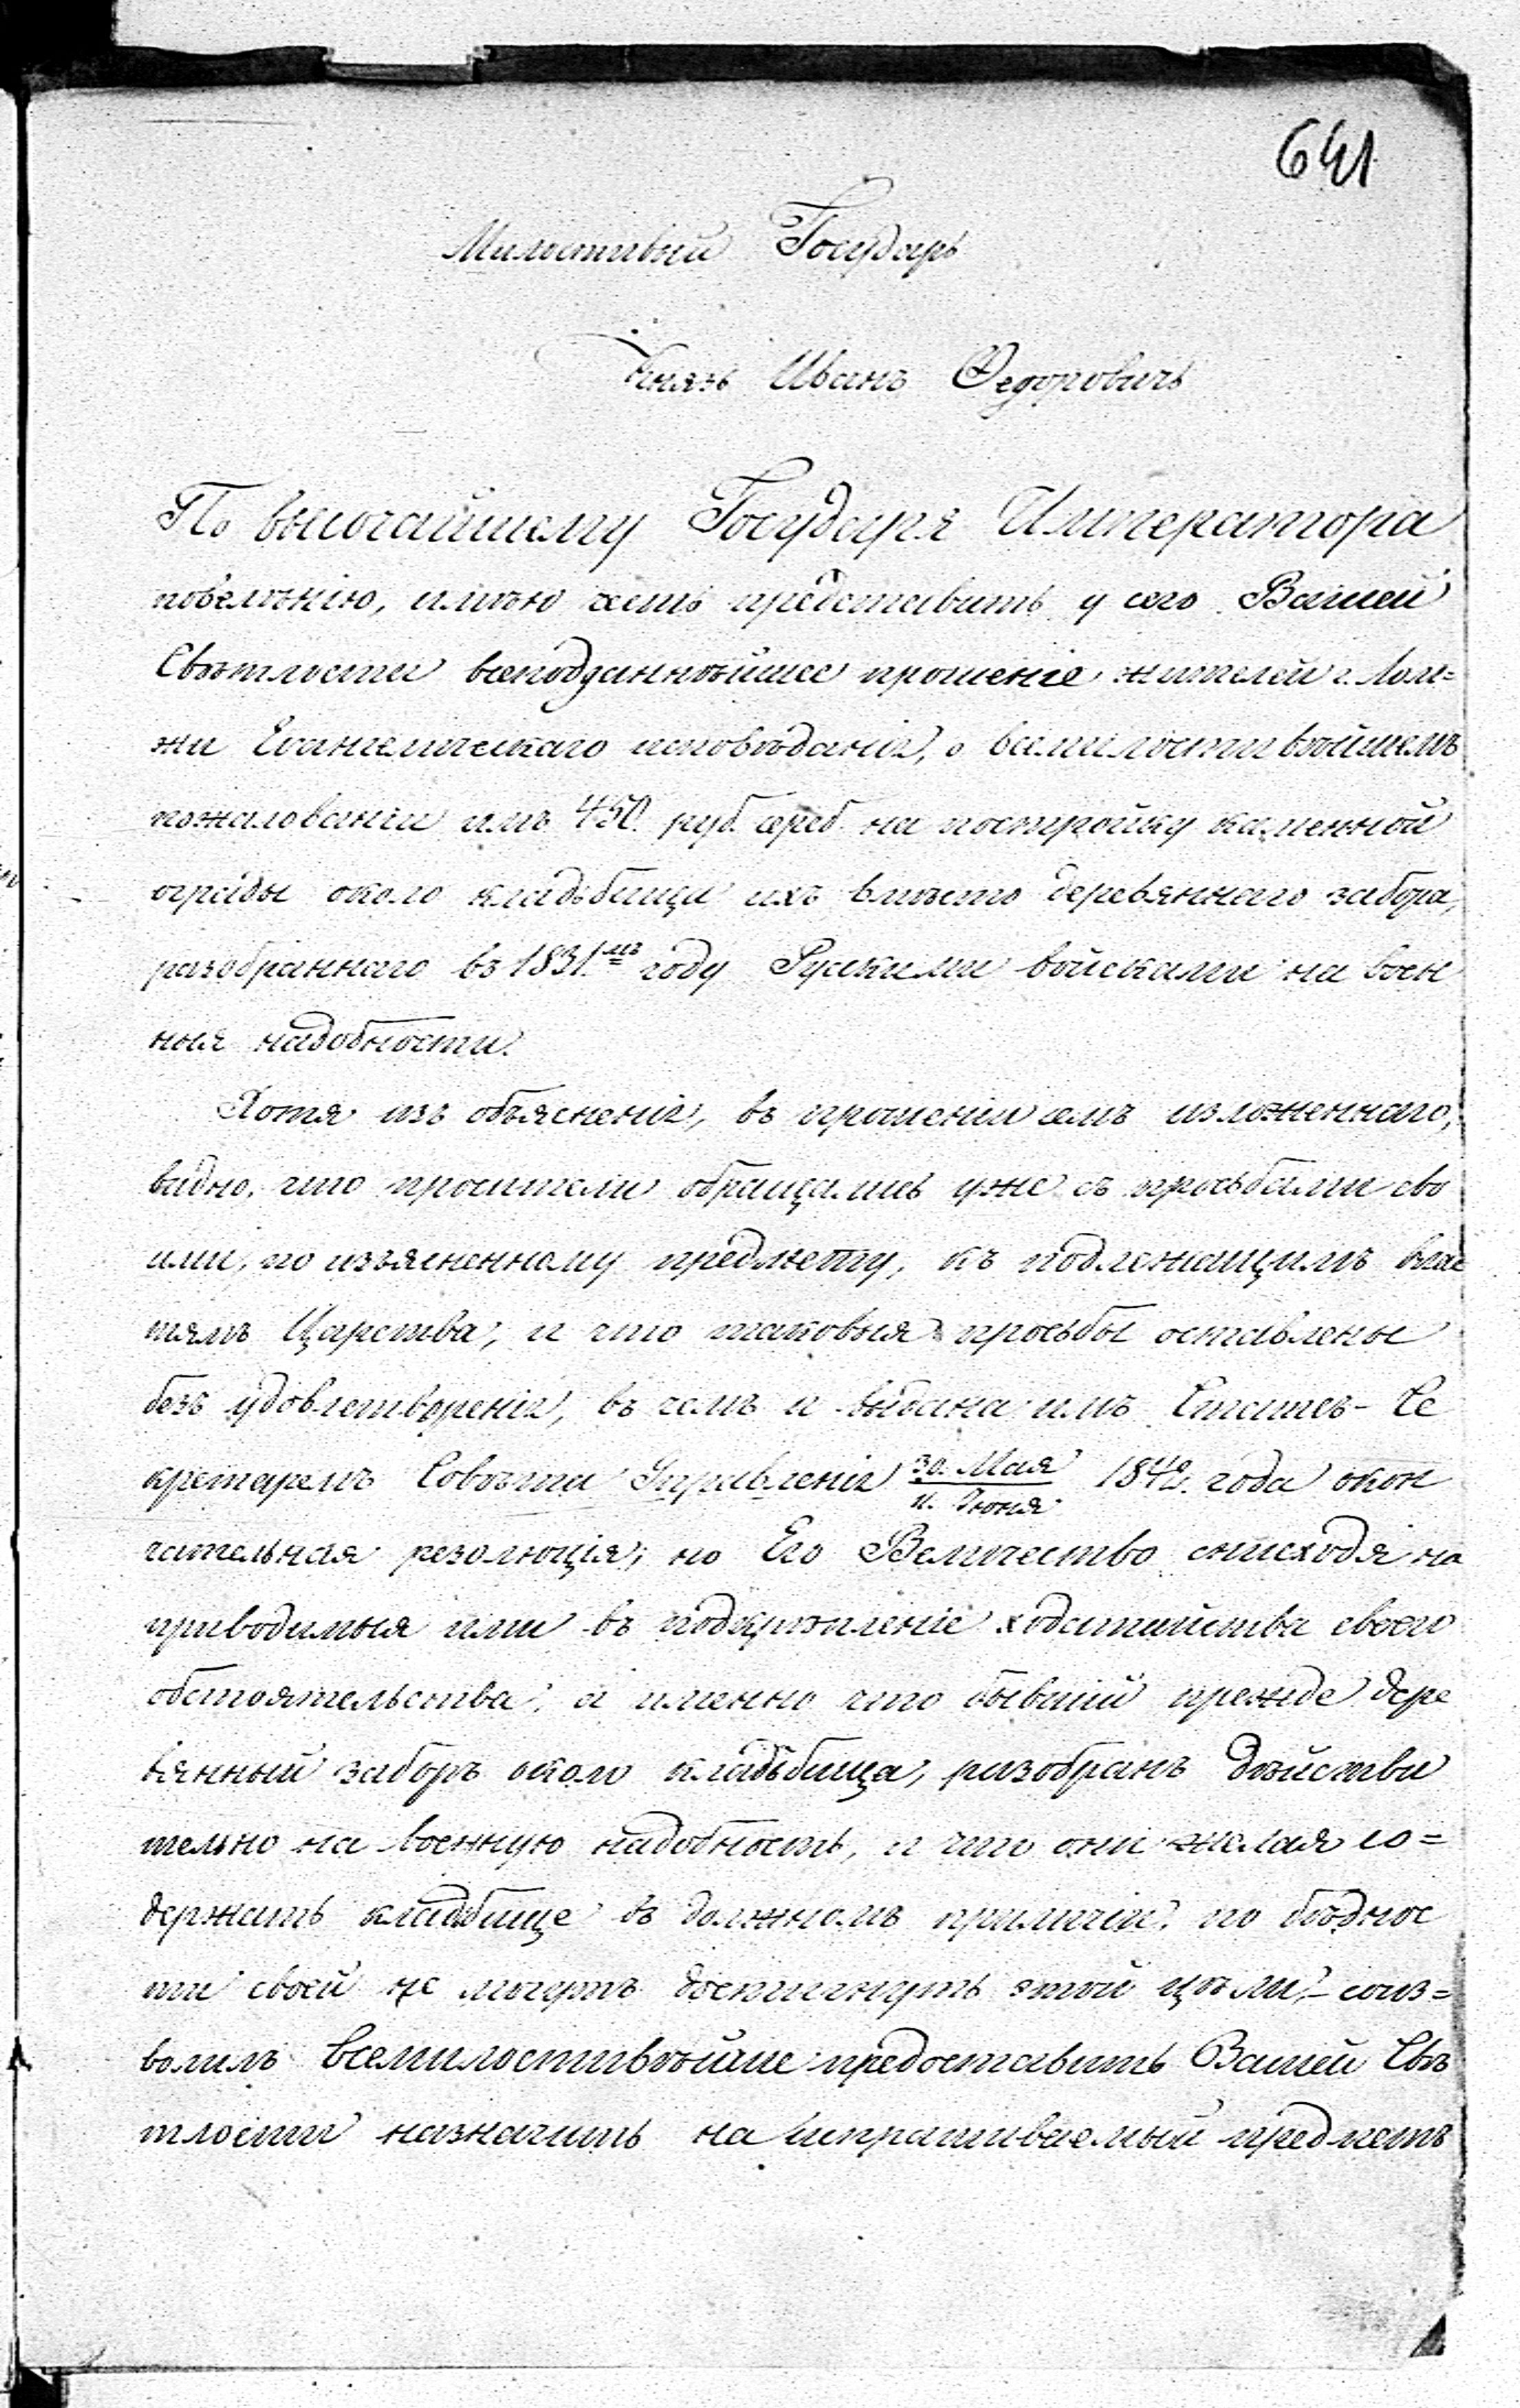 641
Милостивый Государь
Князь Иванъ Федоровичъ
По высочайшему Государя Императора
повелѣнію, имѣю честь представить у сего Вашей
Свѣтлости всеподданнѣйшее прошеніе жителей г. Лом=
жи Евангелическаго исповѣданія, о всемилостивѣйшемъ
пожалованіи имъ 450. руб. сереб. на постройку каменной
ограды около кладбища ихъ вмѣсто деревяннаго забора,
разобраннаго въ 1831.мъ году Рускими войсками на воен
ныя надобности.
Хотя изъ объясненія, въ прошеніи семъ изложеннаго,
видно, что просители обращались уже съ прозьбами сво
ими, по изъясненному предмету, къ подлежащимъ влас
тямъ Царства, и что таковыя просьбы оставлены
безъ удовлетворенія, въ чемъ и выдана имъ Статсъ-Се
кретаремъ Совѣта Управленія 30. Мая / 11. Июня 1842. года окон
чательная резолюція; но Его Величество снисходя на
приводимыя ими въ подкрѣпленіе ходатайства своего
обстоятельства, а именно что бывшій прежде дере
вянный заборъ около кладбища, разобранъ дѣйстви
тельно на военную надобность, и что они желая со=
держать кладбище въ должномъ приличіи, по бѣднос
ти своей не могутъ достигнуть этой цѣли, – соиз=
волилъ Всемилостивѣйше предоставить Вашей Свѣ
тлости назначить на испрашиваемый предметъ